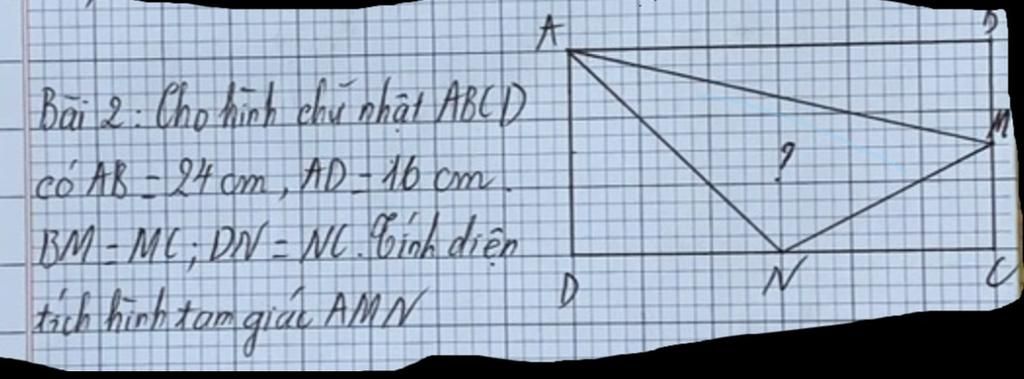 A
B
Bài 2: Cho hình chữ nhật ABCD
M
?
có AB = 24 cm, AD = 16 cm.
BM = MC; DN = NC. Tính diện
D
N
C
tích hình tam giác AMN